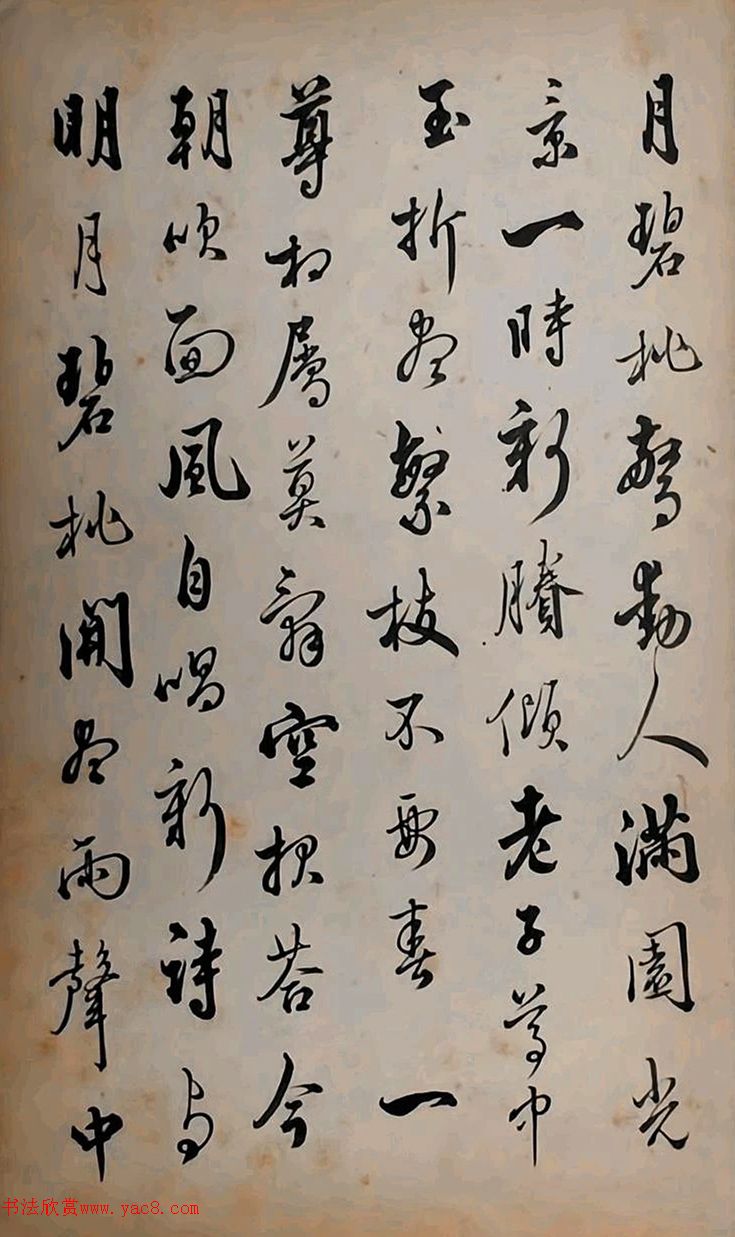 月碧桃驚動人滿園光
景一時新賸傾老子尊中
玉折盡繁枝不要春一
尊相屬莫辭空報答今
朝吹面風自唱新詩与
明月碧桃開盡雨聲中
书法欣赏www.yac8.com